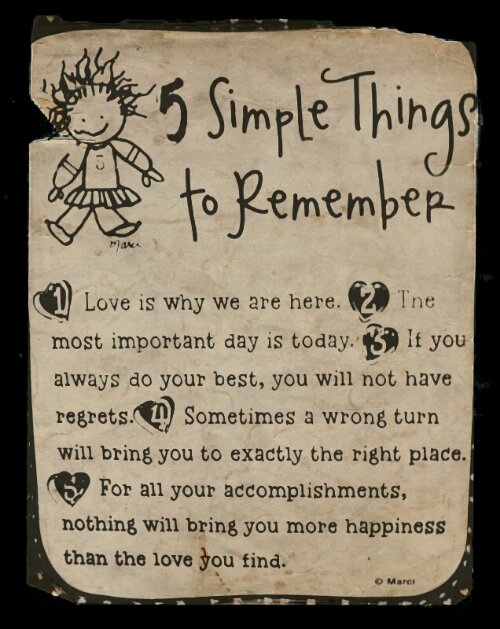 5 Simple Things
to Remember
5
Marci
1 Love is why we are here. 2 The
most important day is today. 3 If you
always do your best, you will not have
regrets. 4 Sometimes a wrong turn
will bring you to exactly the right place.
5 For all your accomplishments,
nothing will bring you more happiness
than the love you find.
© Marci